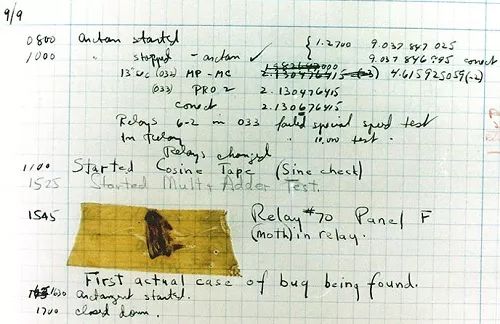 9/9
0800 arctan started
1000 " stopped - arctan ✓ { 1.2700 9.037 847 025
9.037 846 995 correct
13" sec (032) MP - MC 2.130476415 (-3) 4.615925059 (-2)
(033) PRO 2 2.130476415
correct 2.130676415
Relays 6-2 in 033 failed special speed test
In Relay " 10,000 test.
Relays changed
1100 Started Cosine Tape (Sine check)
1525 Started Mult + Adder Test.
1545 Relay #70 Panel F
(moth) in relay.
First actual case of bug being found.
1630 arctangent started.
1700 closed down.